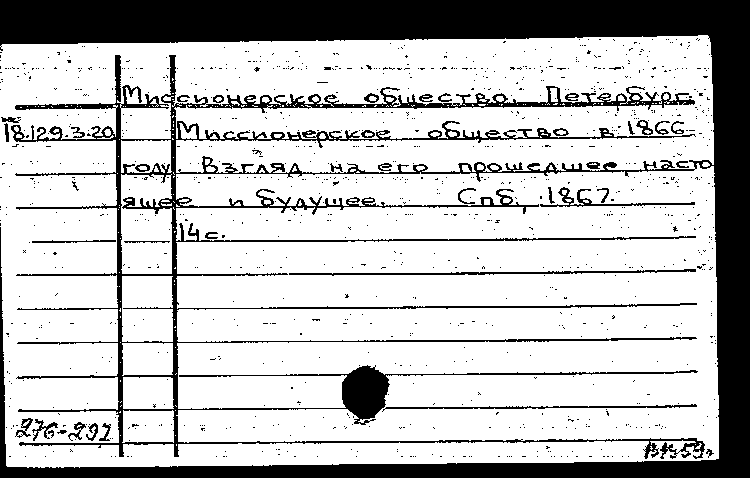 Миссионерское общество. Петербург.
18.129.3.20 Миссионерское общество в 1866
году. Взгляд на его прошедшее, насто
ящее и будущее. Спб., 1867.
14 с.
276-297